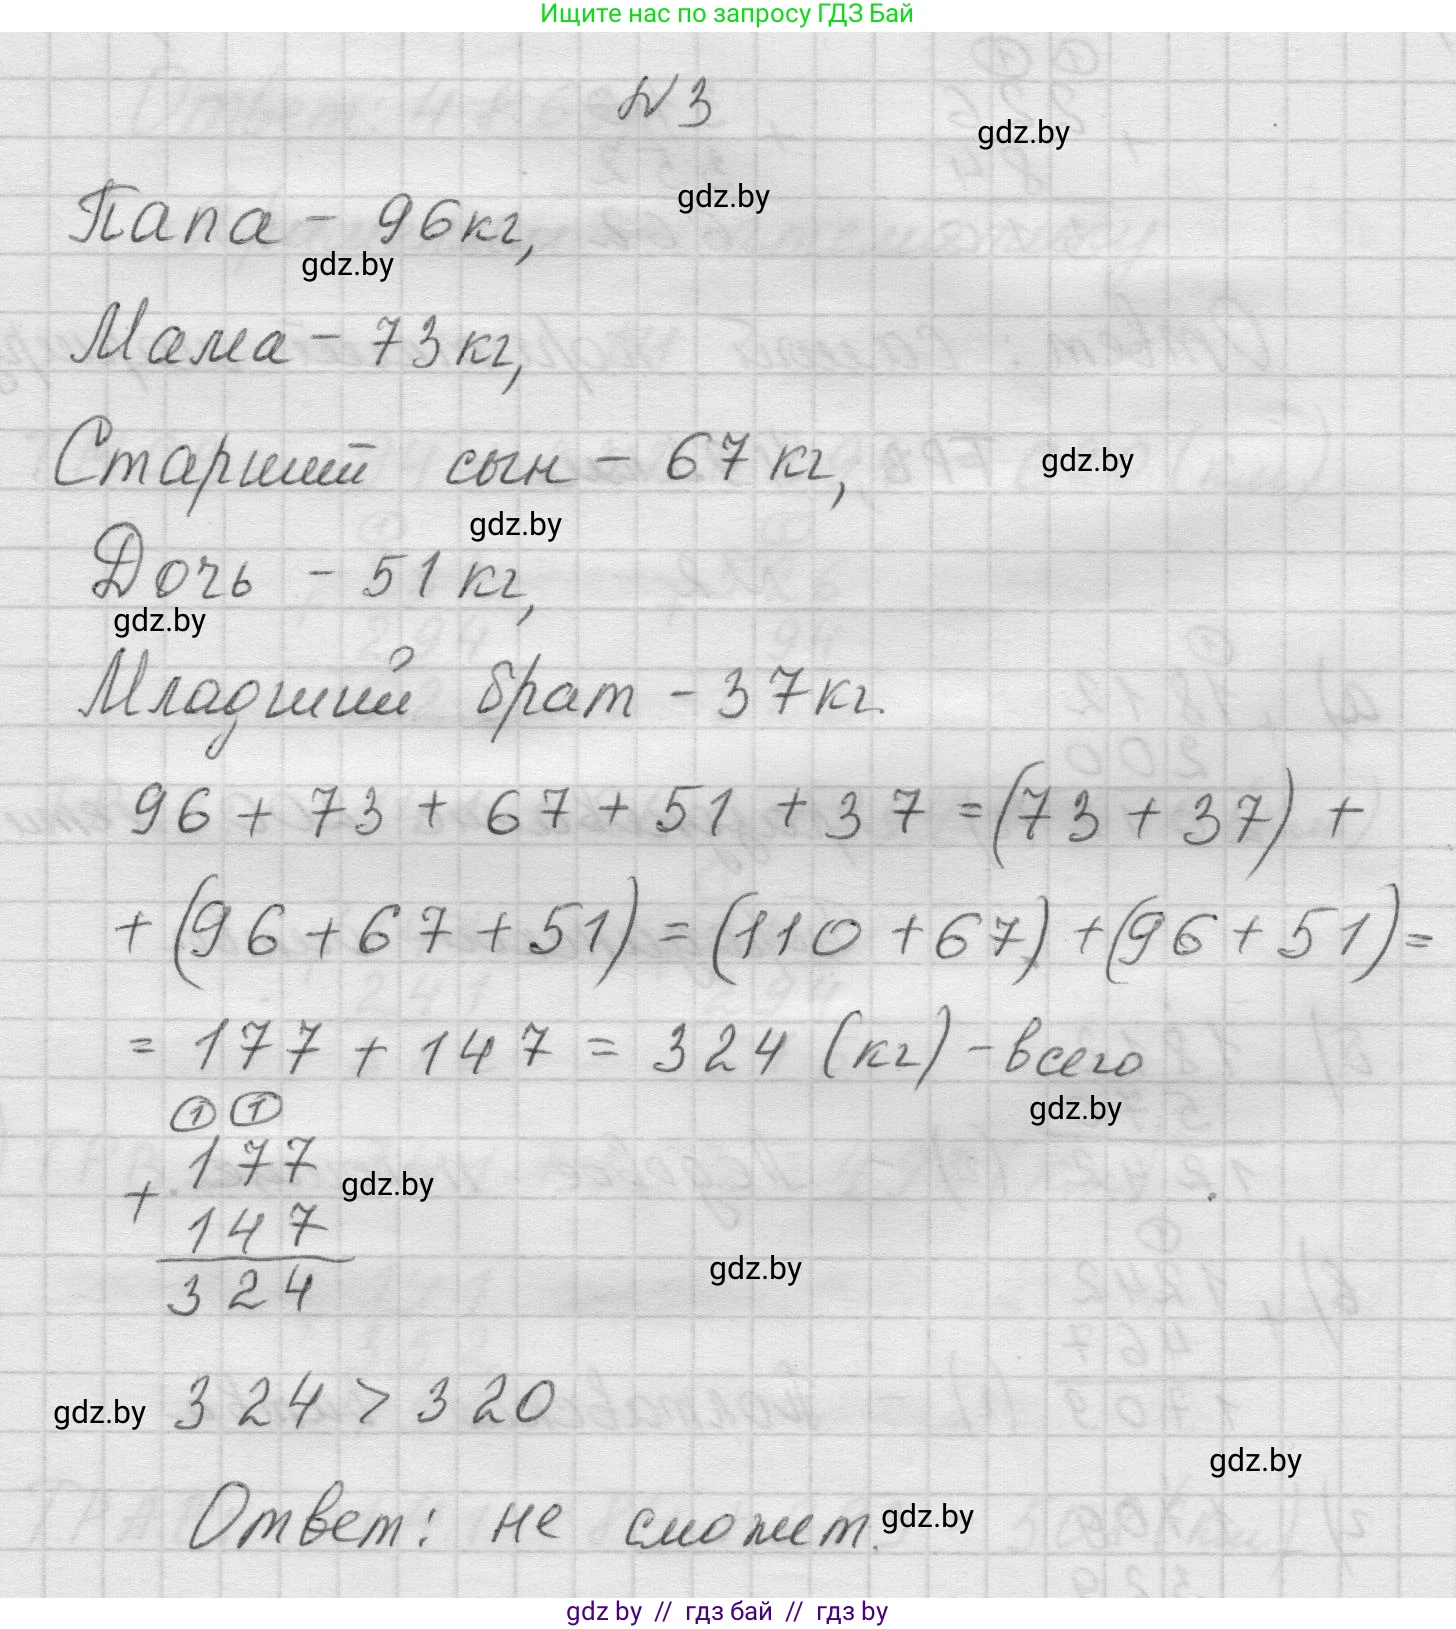 Ищите нас по запросу ГДЗ Бай
№3
gdz.by
gdz.by
Папа - 96кг,
gdz.by
Мама - 73кг,
Старший сын - 67 кг,
gdz.by
gdz.by
Дочь - 51 кг,
gdz.by
Младший брат - 37кг.
96 + 73 + 67 + 51 + 37 = (73 + 37) +
+ (96 + 67 + 51) = (110 + 67) + (96 + 51) =
= 177 + 147 = 324 (кг) - всего
gdz.by
1 1
177
gdz.by
+
147
324
gdz.by
gdz.by 324 > 320
gdz.by
Ответ: не сможет.
gdz.by
gdz by // гдз бай // гдз by